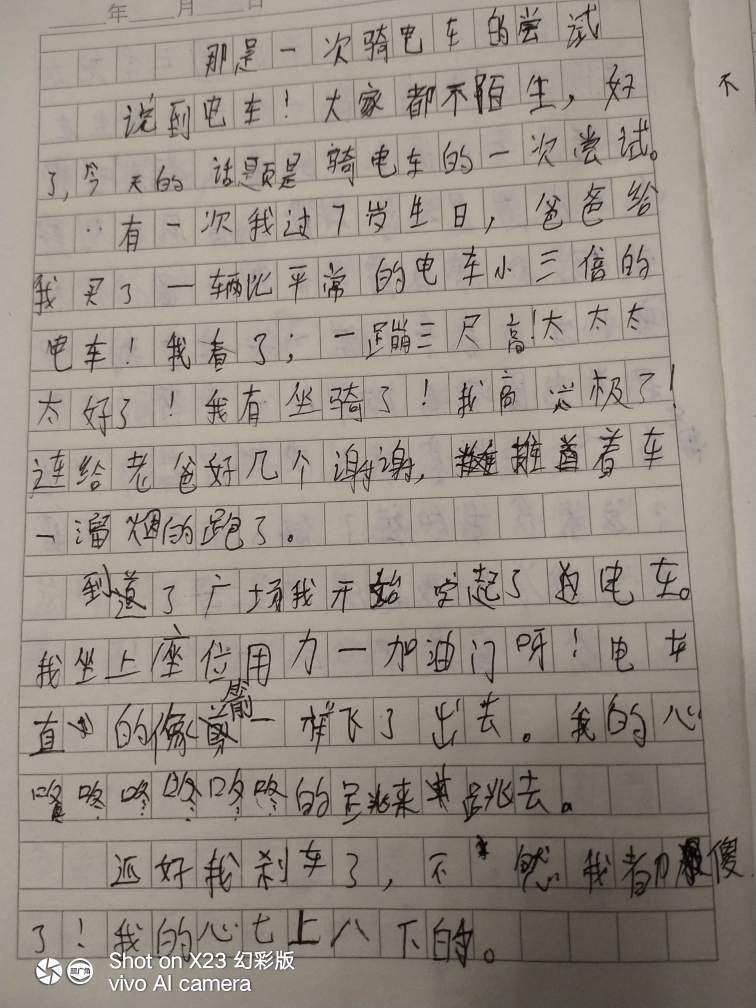 年 月 日
那是一次骑电车的尝试
不
说到电车！大家都不陌生，好
了，今天的话题是骑电车的一次尝试。
有一次我过7岁生日，爸爸给
我买了一辆比平常的电车小三倍的
电车！我看了；一蹦三尺高！太太太
太好了！我有坐骑了！我高兴极了！
连给老爸好几个谢谢，推着车
一溜烟的跑了。
到了广场我开始起了电车。
我坐上座位用力一加油门呀！电车
直的像箭一样飞了出去。我的心
咚咚咚咚咚的跳来跳去。
还好我刹车了，不然我都傻
了！我的心七上八下的。
Shot on X23 幻彩版
vivo AI camera
超广角